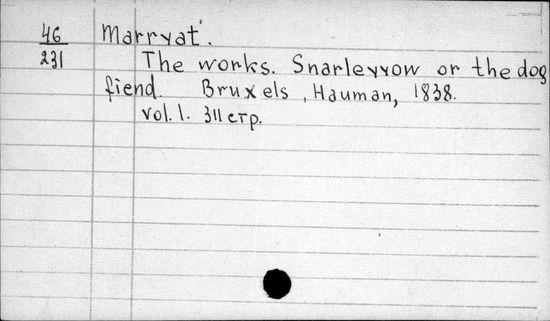 46 Marryat.
231 The works. Snarleyyow or the dog
fiend. Bruxels, Hauman, 1838.
vol. 1. 311 стр.